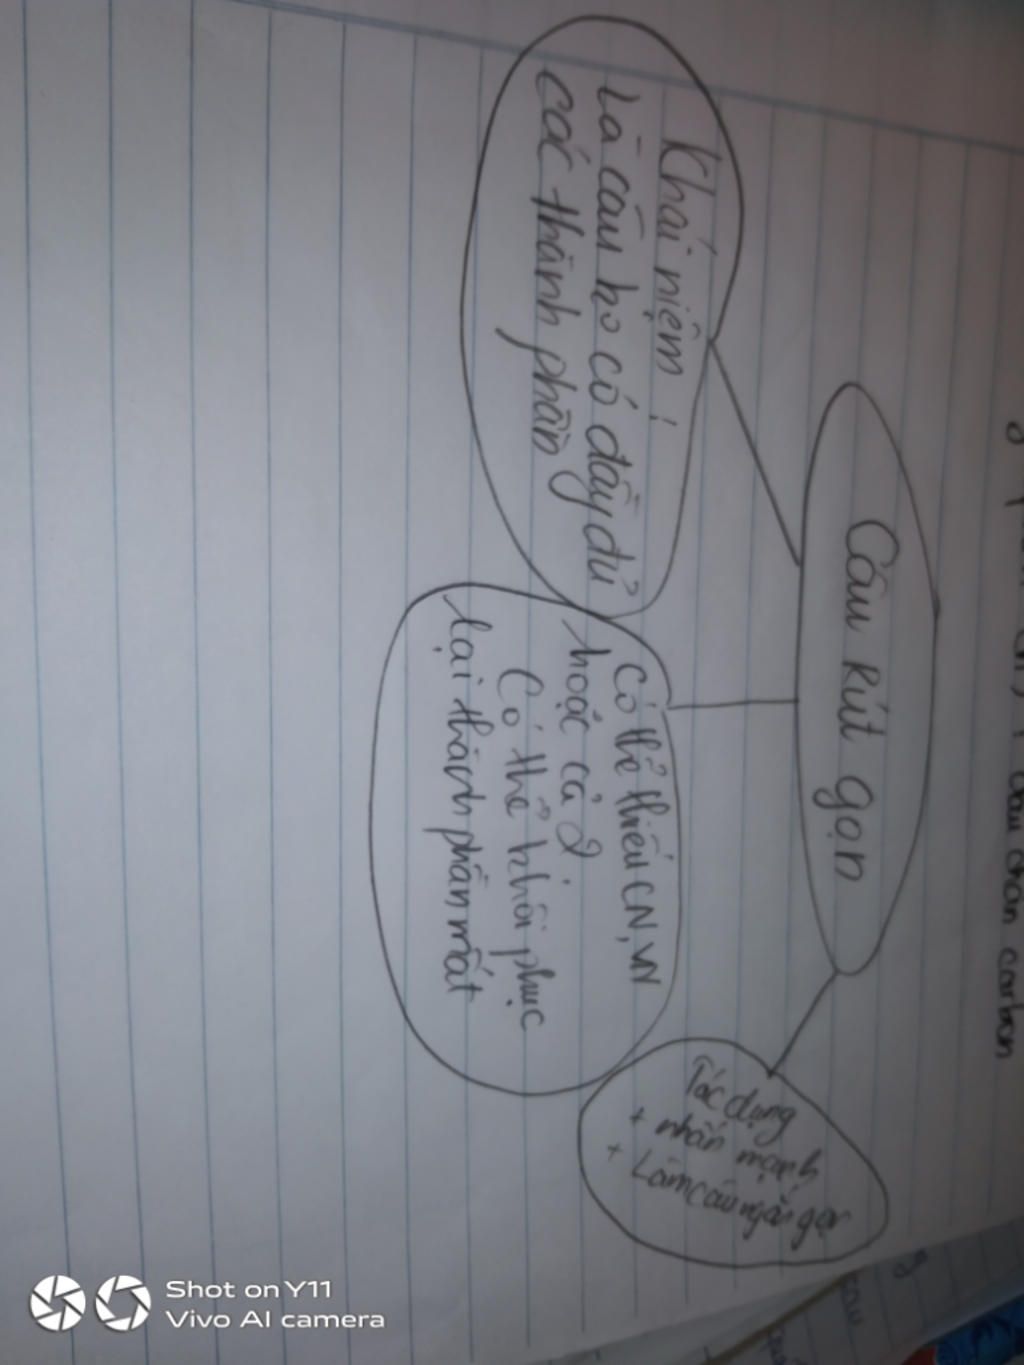 Câu Rút gọn
Khái niệm :
Là câu ko có đầy đủ
các thành phần
Có thể thiếu CN, VN
hoặc cả 2
Có thể khôi phục
lại thành phần mất
Tác dụng
+ nhấn mạnh
+ Làm câu ngắn gọn
carbon
Shot on Y11
Vivo AI camera